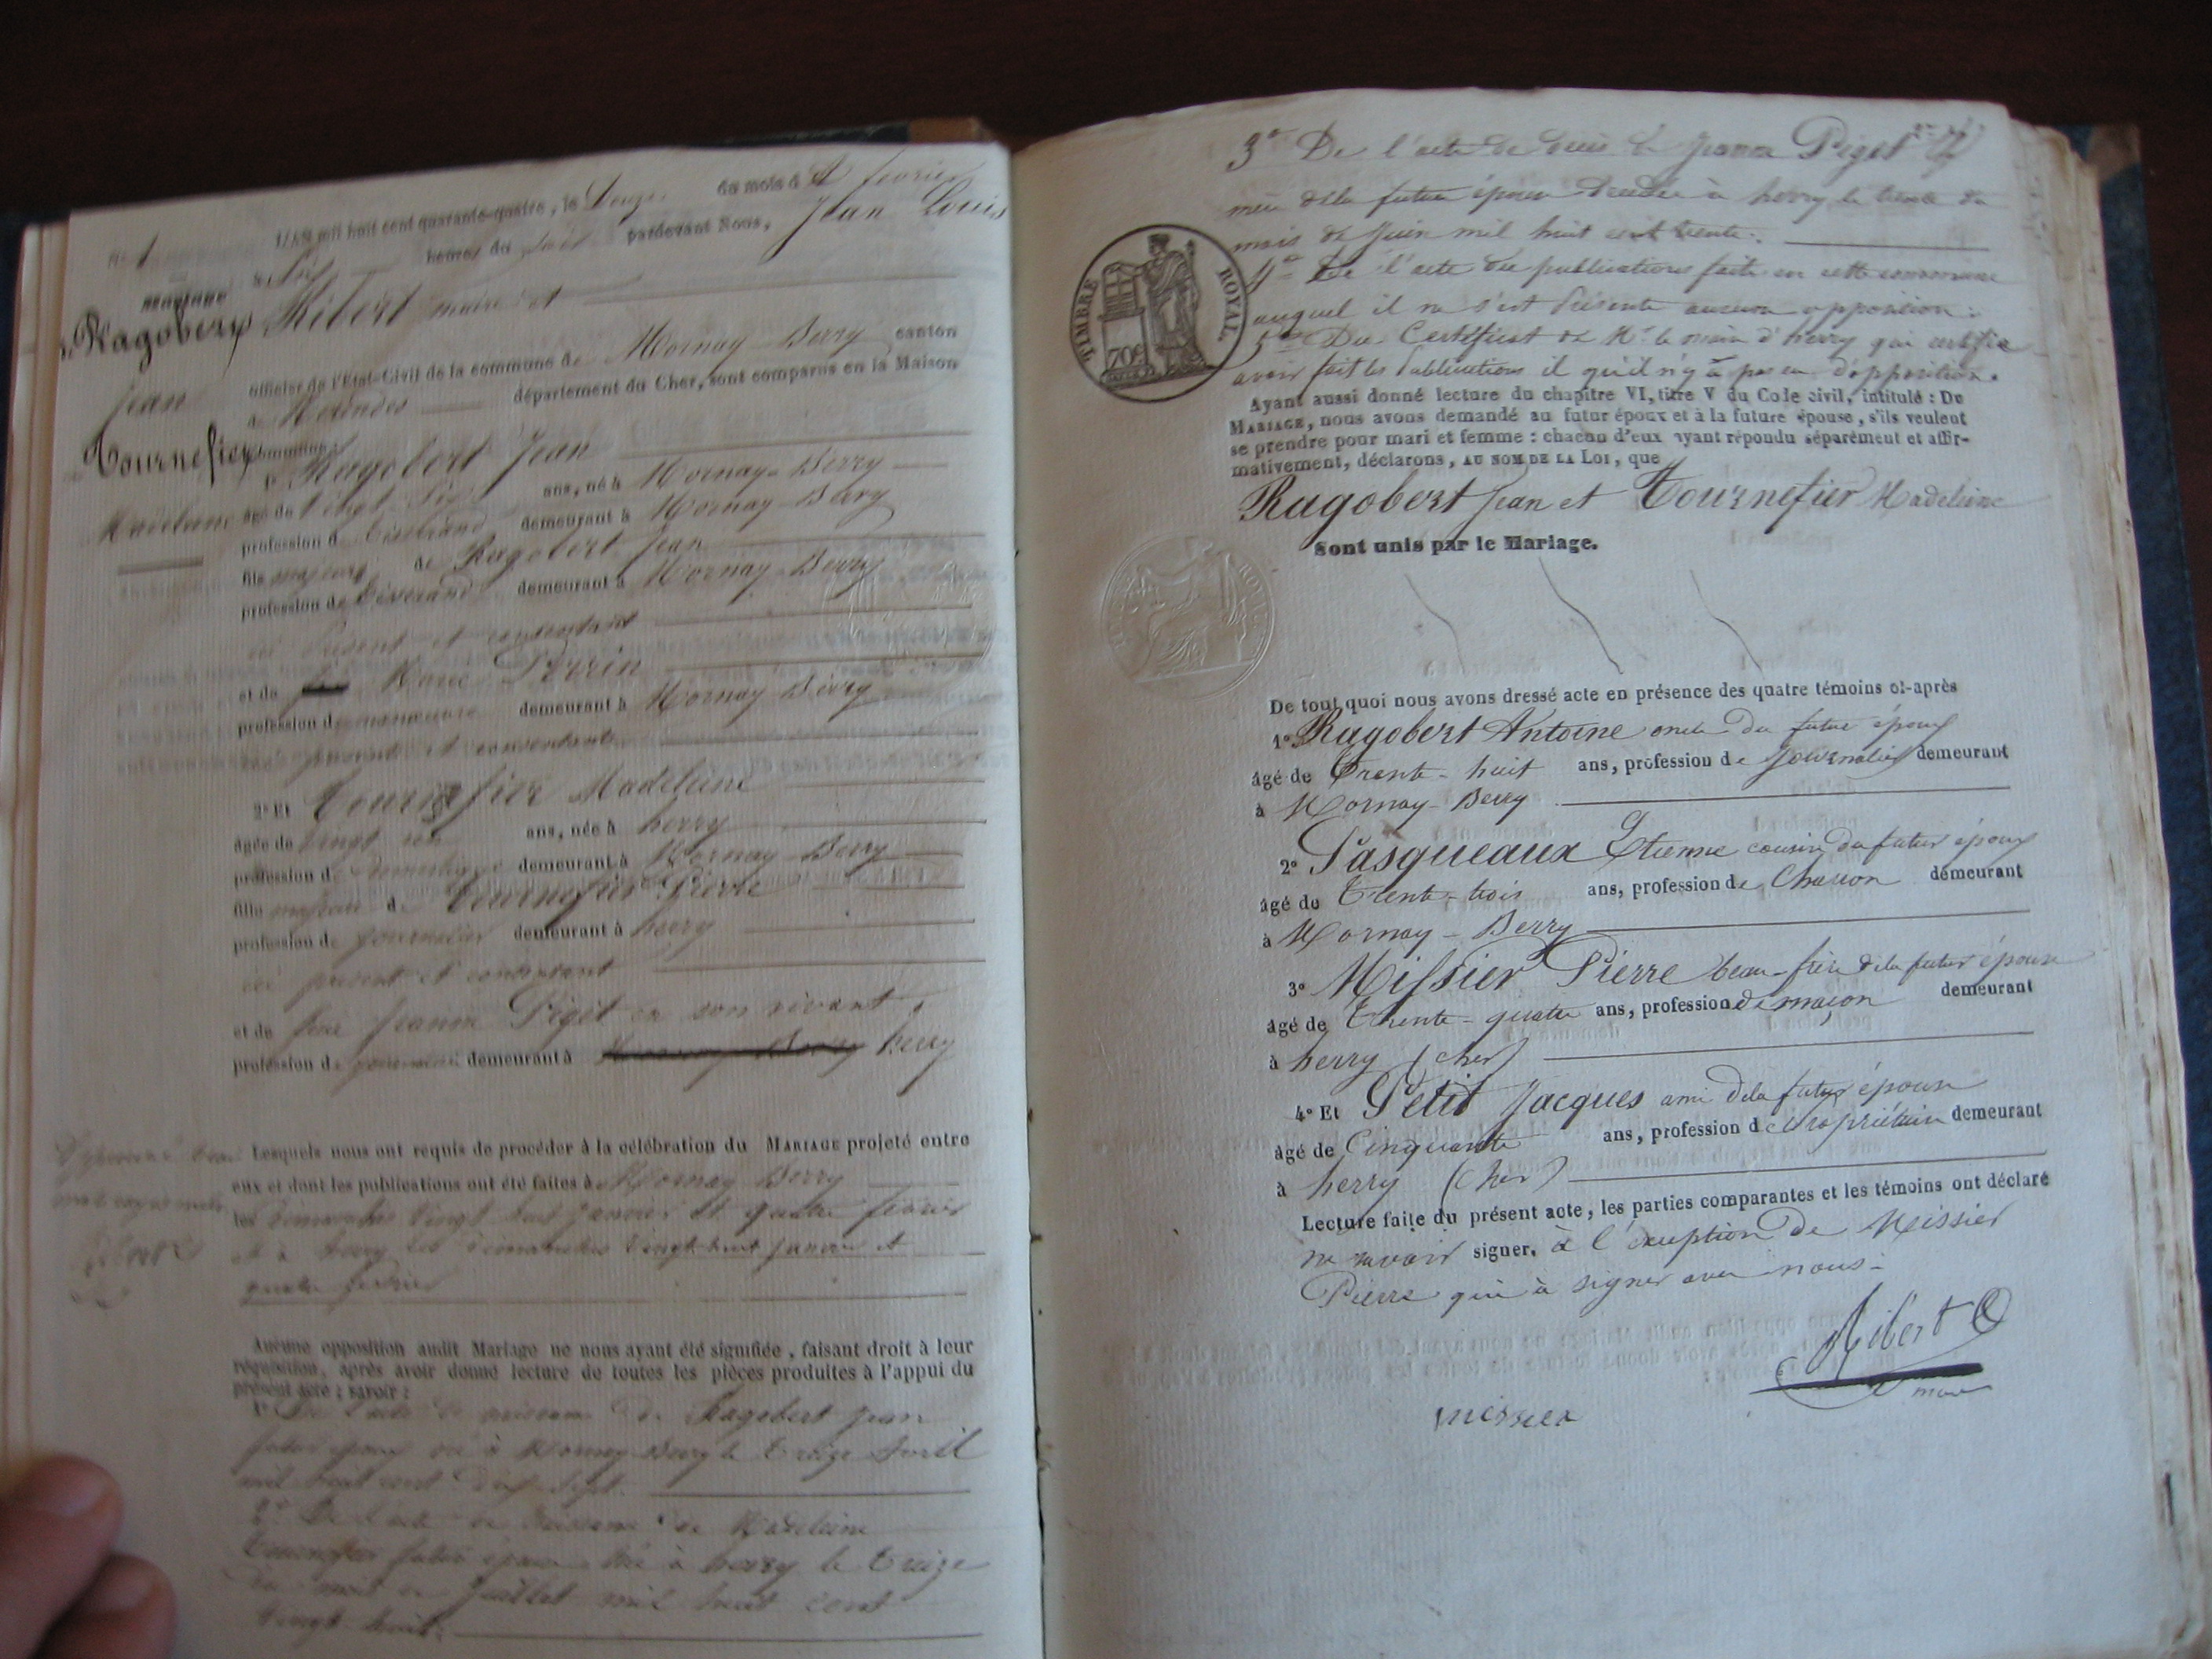 N° 1
L'AN mil huit cent quarante-quatre, le Douze du mois d février
à Six heures du pardevant Nous, Jean Louis
MARIAGE
Ragobert
Ribert maire et
officier de l'État-Civil de la commune de Mornay-Berry canton
Jean
de Nérondes département du Cher, sont comparus en la Maison
Tournefier commune:
1° Ragobert Jean
Madeleine
âgé de Vingt Six ans, né à Mornay-Berry
profession de Tisserand demeurant à Mornay-Berry
fils majeur de Ragobert Jean
profession de Tisserand demeurant à Mornay-Berry
ici présent et consentant
et de Marie Perrin
profession de demeurant à Mornay-Berry
ici présente et consentante
2° Et Tournefier Madeleine
âgée de Vingt ans, née à herry
profession de domestique demeurant à Mornay-Berry
fille majeure de Tournefier Pierre
profession de journalier demeurant à herry
ici présent et consentant
et de feue Jeanne Piget en son vivant
profession de journalière demeurant à Mornay Berry herry
Lesquels nous ont requis de procéder à la célébration du MARIAGE projeté entre
eux et dont les publications ont été faites à Mornay Berry
les dimanches vingt huit janvier et quatre février
et à herry les dimanches vingt-huit janvier et
quatre février
Aucune opposition audit Mariage ne nous ayant été signifiée, faisant droit à leur
réquisition, après avoir donné lecture de toutes les pièces produites à l'appui du
présent acte; savoir:
1° De l'acte de naissance de Ragobert Jean
futur époux né à Mornay-Berry le treize Avril
mil huit cent dix-sept.
2° De l'acte de naissance de Madeleine
Tournefier future épouse née à herry le treize
du mois de juillet mil huit cent
vingt
3° De l'acte de décès de Jeanne Piget
mère de la future épouse décédée à herry le trente du
mois de Juin mil huit cent trente.
4° De l'acte de publications faite en cette commune
auquel il ne s'est présenté aucune opposition.
TIMBRE ROYAL
70c
5° Du Certificat de Mr le maire d'herry qui certifie
avoir fait les publications il qu'il n'y à pas eu d'opposition.
Ayant aussi donné lecture du chapitre VI, titre V du Code civil, intitulé: DU
MARIAGE, nous avons demandé au futur époux et à la future épouse, s'ils veulent
se prendre pour mari et femme: chacun d'eux ayant répondu séparément et affir-
mativement, déclarons, AU NOM DE LA LOI, que
Ragobert Jean et Tournefier Madeleine
Sont unis par le Mariage.
De tout quoi nous avons dressé acte en présence des quatre témoins ci-après
1° Ragobert Antoine oncle du futur époux
âgé de Trente-huit ans, profession de Journalier demeurant
à Mornay-Berry
2° Pasqueaux Etienne cousin du futur époux
âgé de Trente-trois ans, profession de Charron demeurant
à Mornay-Berry
3° Missier Pierre beau-frère de la futur épouse
âgé de Trente-quatre ans, profession de maçon demeurant
à herry (cher)
4° Et Petit Jacques ami de la futur épouse
âgé de Cinquante ans, profession de propriétaire demeurant
à herry (Cher)
Lecture faite du présent acte, les parties comparantes et les témoins ont déclaré
ne savoir signer. à l'exception de Meissier
Pierre qui à signer avec nous.
Ribert
maire
messier